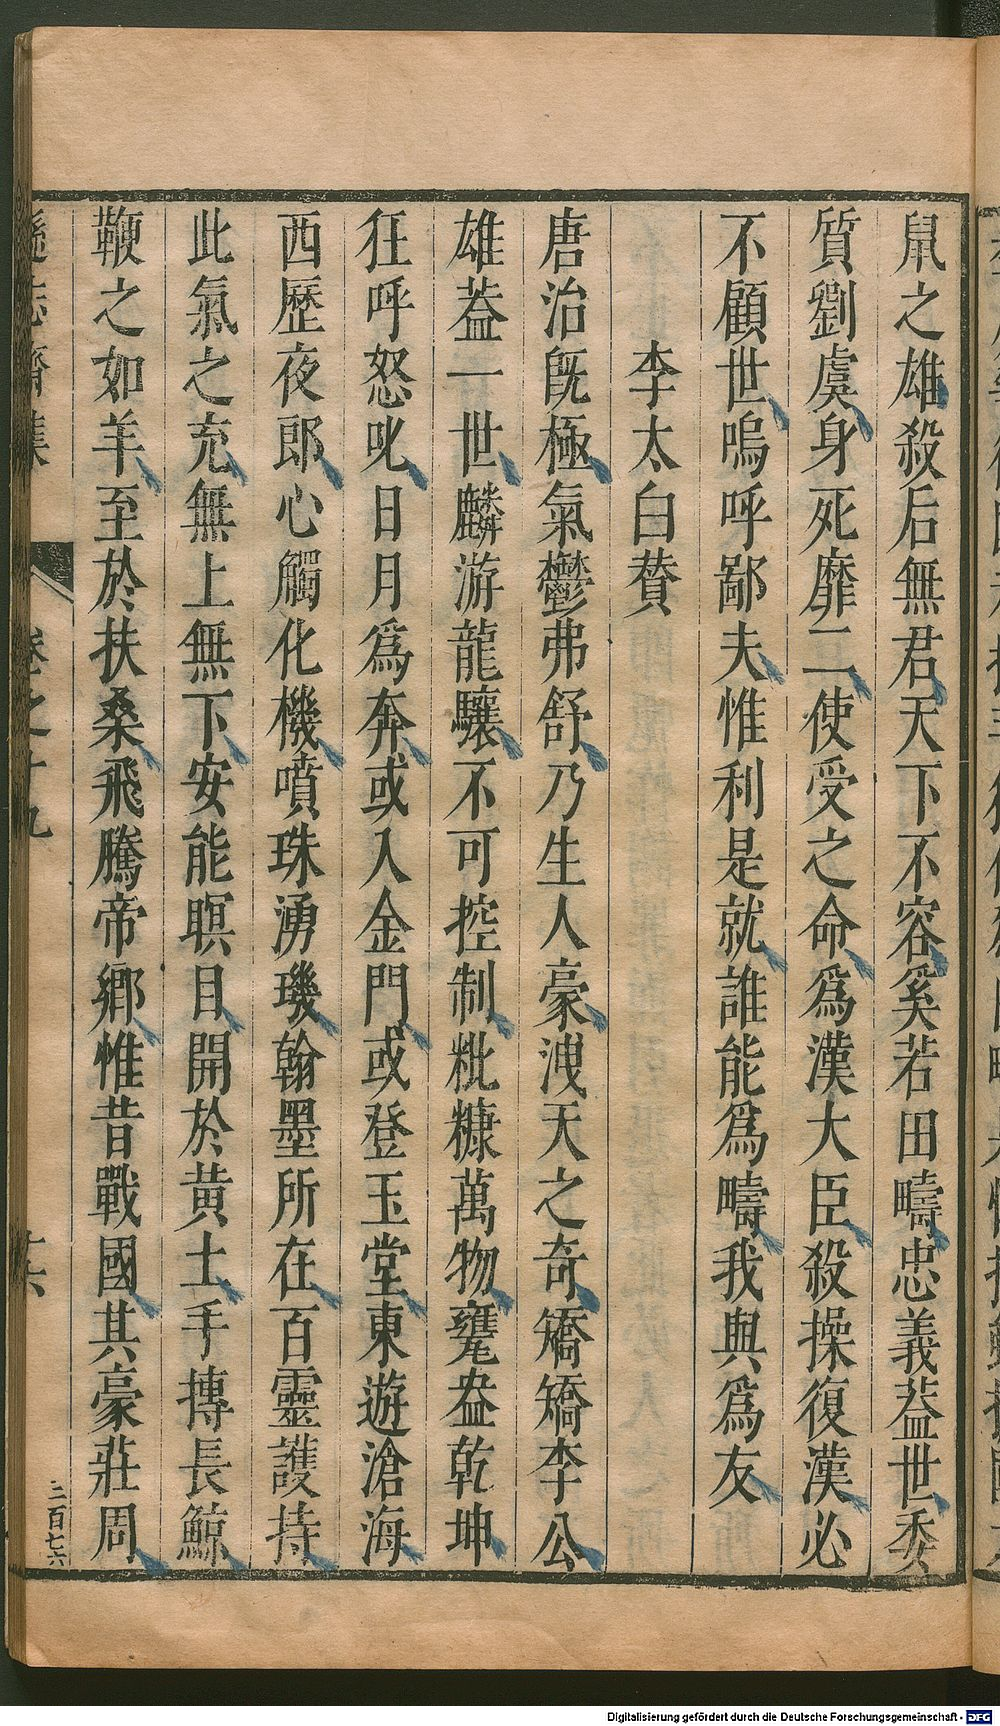 鼠之雄殺后無君天下不容奚若田疇忠義葢世委
質劉虞身死靡二使受之命爲漢大臣殺操復漢必
不顧世嗚呼鄙夫惟利是就誰能爲疇我與爲友
李太白賛
唐治旣極氣鬱弗舒乃生人豪洩天之奇矯矯李公
雄葢一世麟游龍驤不可控制粃糠萬物甕盎乾坤
狂呼怒叱日月爲奔或入金門或登玉堂東遊滄海
西歷夜郎心觸化機噴珠湧璣翰墨所在百靈護持
此氣之充無上無下安能瞑目開於黄土手摶長鯨
鞭之如羊至於扶桑飛騰帝鄉惟昔戰國其豪莊周
遜志齋集
卷之十九
十六
三百七六
Digitalisierung gefördert durch die Deutsche Forschungsgemeinschaft - DFG